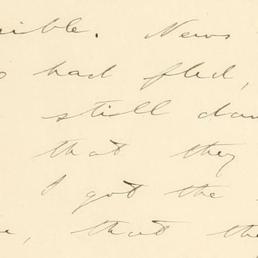 sible. News
had fled,
still dan
that they
I got the
that the